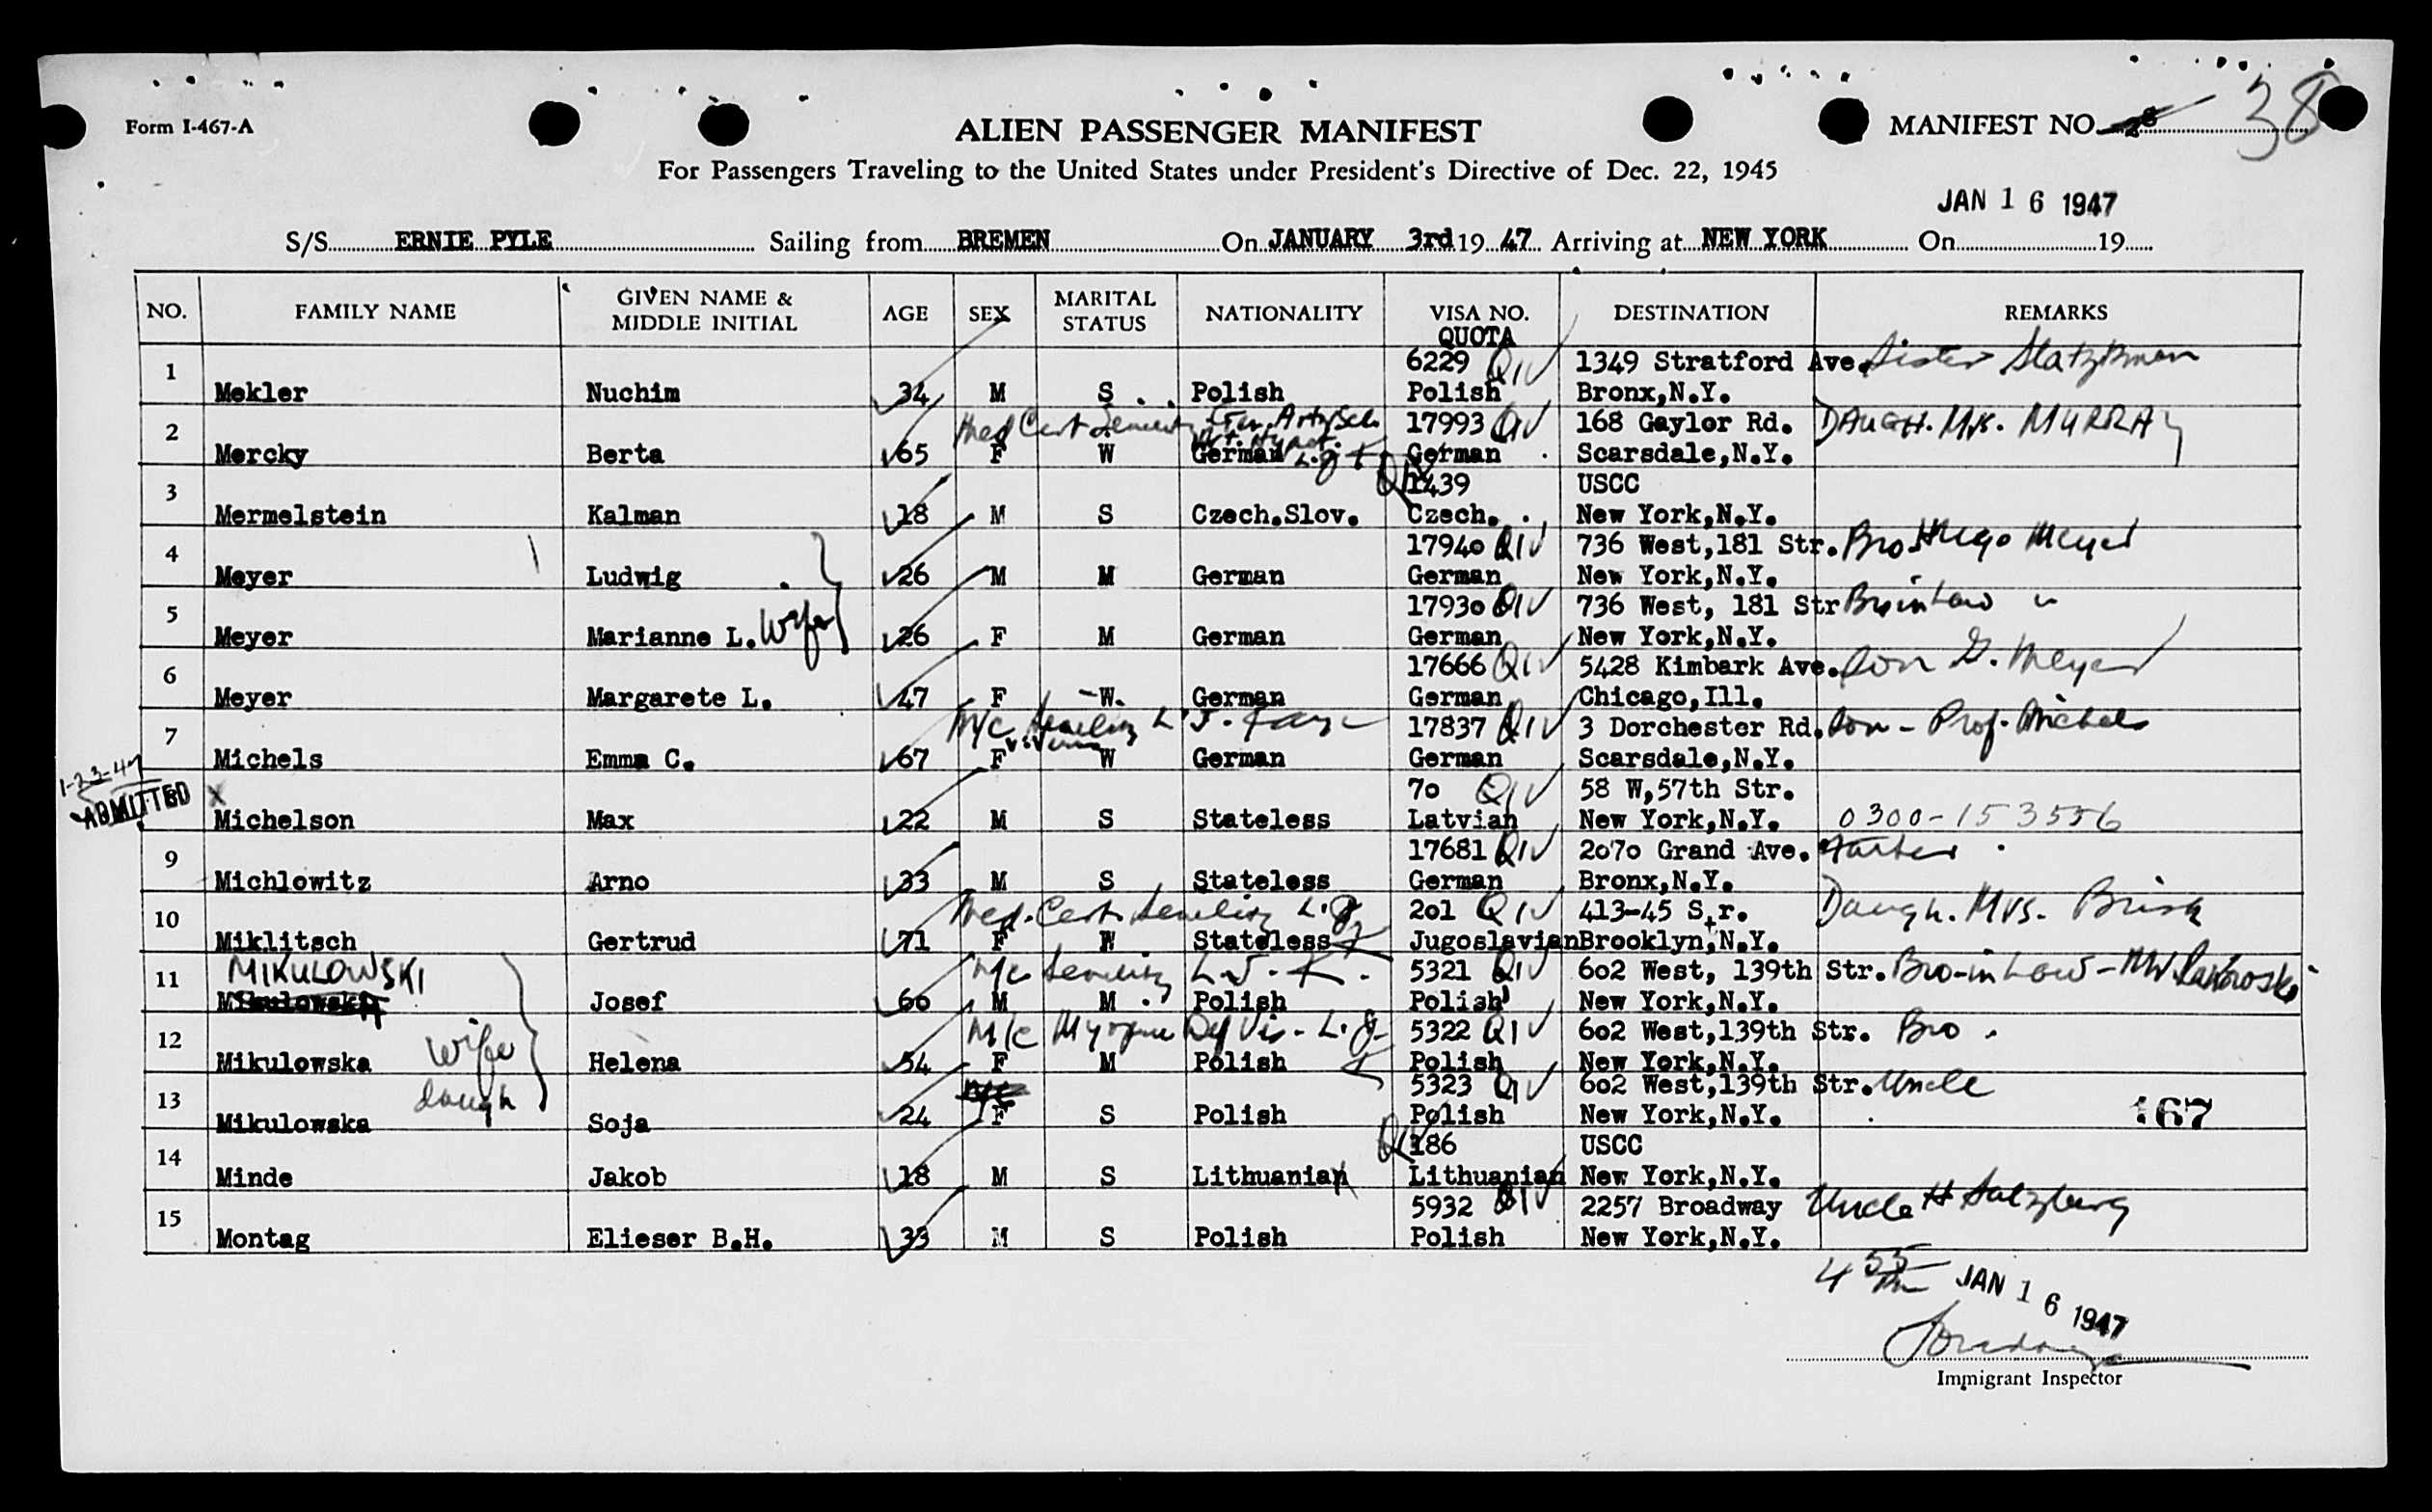 Form I-467-A
ALIEN PASSENGER MANIFEST
MANIFEST NO. 28 38
For Passengers Traveling to the United States under President's Directive of Dec. 22, 1945
JAN 16 1947
S/S ERNIE PYLE Sailing from BREMEN On JANUARY 3rd 19 47 Arriving at NEW YORK On 19
NO. FAMILY NAME GIVEN NAME & MIDDLE INITIAL AGE SEX MARITAL STATUS NATIONALITY VISA NO. QUOTA DESTINATION REMARKS
6229 QIV 1349 Stratford Ave. Sister
1 Mekler Nuchim 34 M S Polish Polish Bronx,N.Y.
Med Cert Senility 17993 QIV 168 Gaylor Rd. DAUGH. Mrs. MURRAY
2 Mercky Berta 65 F W German German Scarsdale,N.Y.
QIV 1439 USCC
3 Mermelstein Kalman 18 M S Czech.Slov. Czech. New York,N.Y.
17940 QIV 736 West,181 Str. Bro Hugo Meyer
4 Meyer Ludwig 26 M M German German New York,N.Y.
17930 QIV 736 West, 181 Str Bro in Law "
5 Meyer Marianne L. Wife 26 F M German German New York,N.Y.
17666 QIV 5428 Kimbark Ave. Son G. Meyer
6 Meyer Margarete L. 47 F W. German German Chicago,Ill.
M/c Senility 17837 QIV 3 Dorchester Rd. Son - Prof. Michels
7 Michels Emma C. 67 F W German German Scarsdale,N.Y.
1-23-47 70 QIV 58 W,57th Str.
ADMITTED 8 X Michelson Max 22 M S Stateless Latvian New York,N.Y. 0300-153556
17681 QIV 2070 Grand Ave. Father
9 Michlowitz Arno 33 M S Stateless German Bronx,N.Y.
Med. Cert. Senility 201 QIV 413-45 Str. Daugh. Mrs. Brisk
10 Miklitsch Gertrud 71 F W Stateless Jugoslavian Brooklyn,N.Y.
MIKULOWSKI M/c Senility 5321 QIV 602 West, 139th Str. Bro-in Law -
11 Mikulowska Josef 60 M M Polish Polish New York,N.Y.
M/c Myopia Def Vis - 5322 QIV 602 West,139th Str. Bro.
12 Mikulowska Wife Helena 54 F M Polish Polish New York,N.Y.
daugh M/c 5323 QIV 602 West,139th Str. Uncle
13 Mikulowska Soja 24 F S Polish Polish New York,N.Y. 167
QIV 186 USCC
14 Minde Jakob 18 M S Lithuanian Lithuanian New York,N.Y.
5932 QIV 2257 Broadway Uncle H Salzberg
15 Montag Elieser B.H. 33 M S Polish Polish New York,N.Y.
4 55 PM JAN 16 1947
Immigrant Inspector